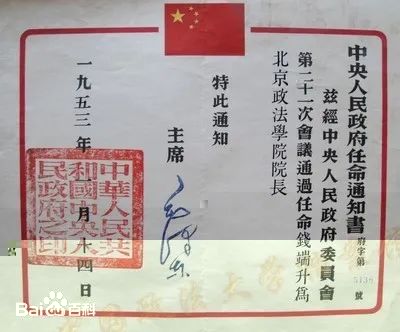 中央人民政府任命通知書
府字第 號
茲經中央人民政府委員會
第二十一次會議通過任命錢端升爲
北京政法學院院長
特此通知
主席
一九五三年 月十四日
中華人民共
和國中央人
民政府之印
Bai百科